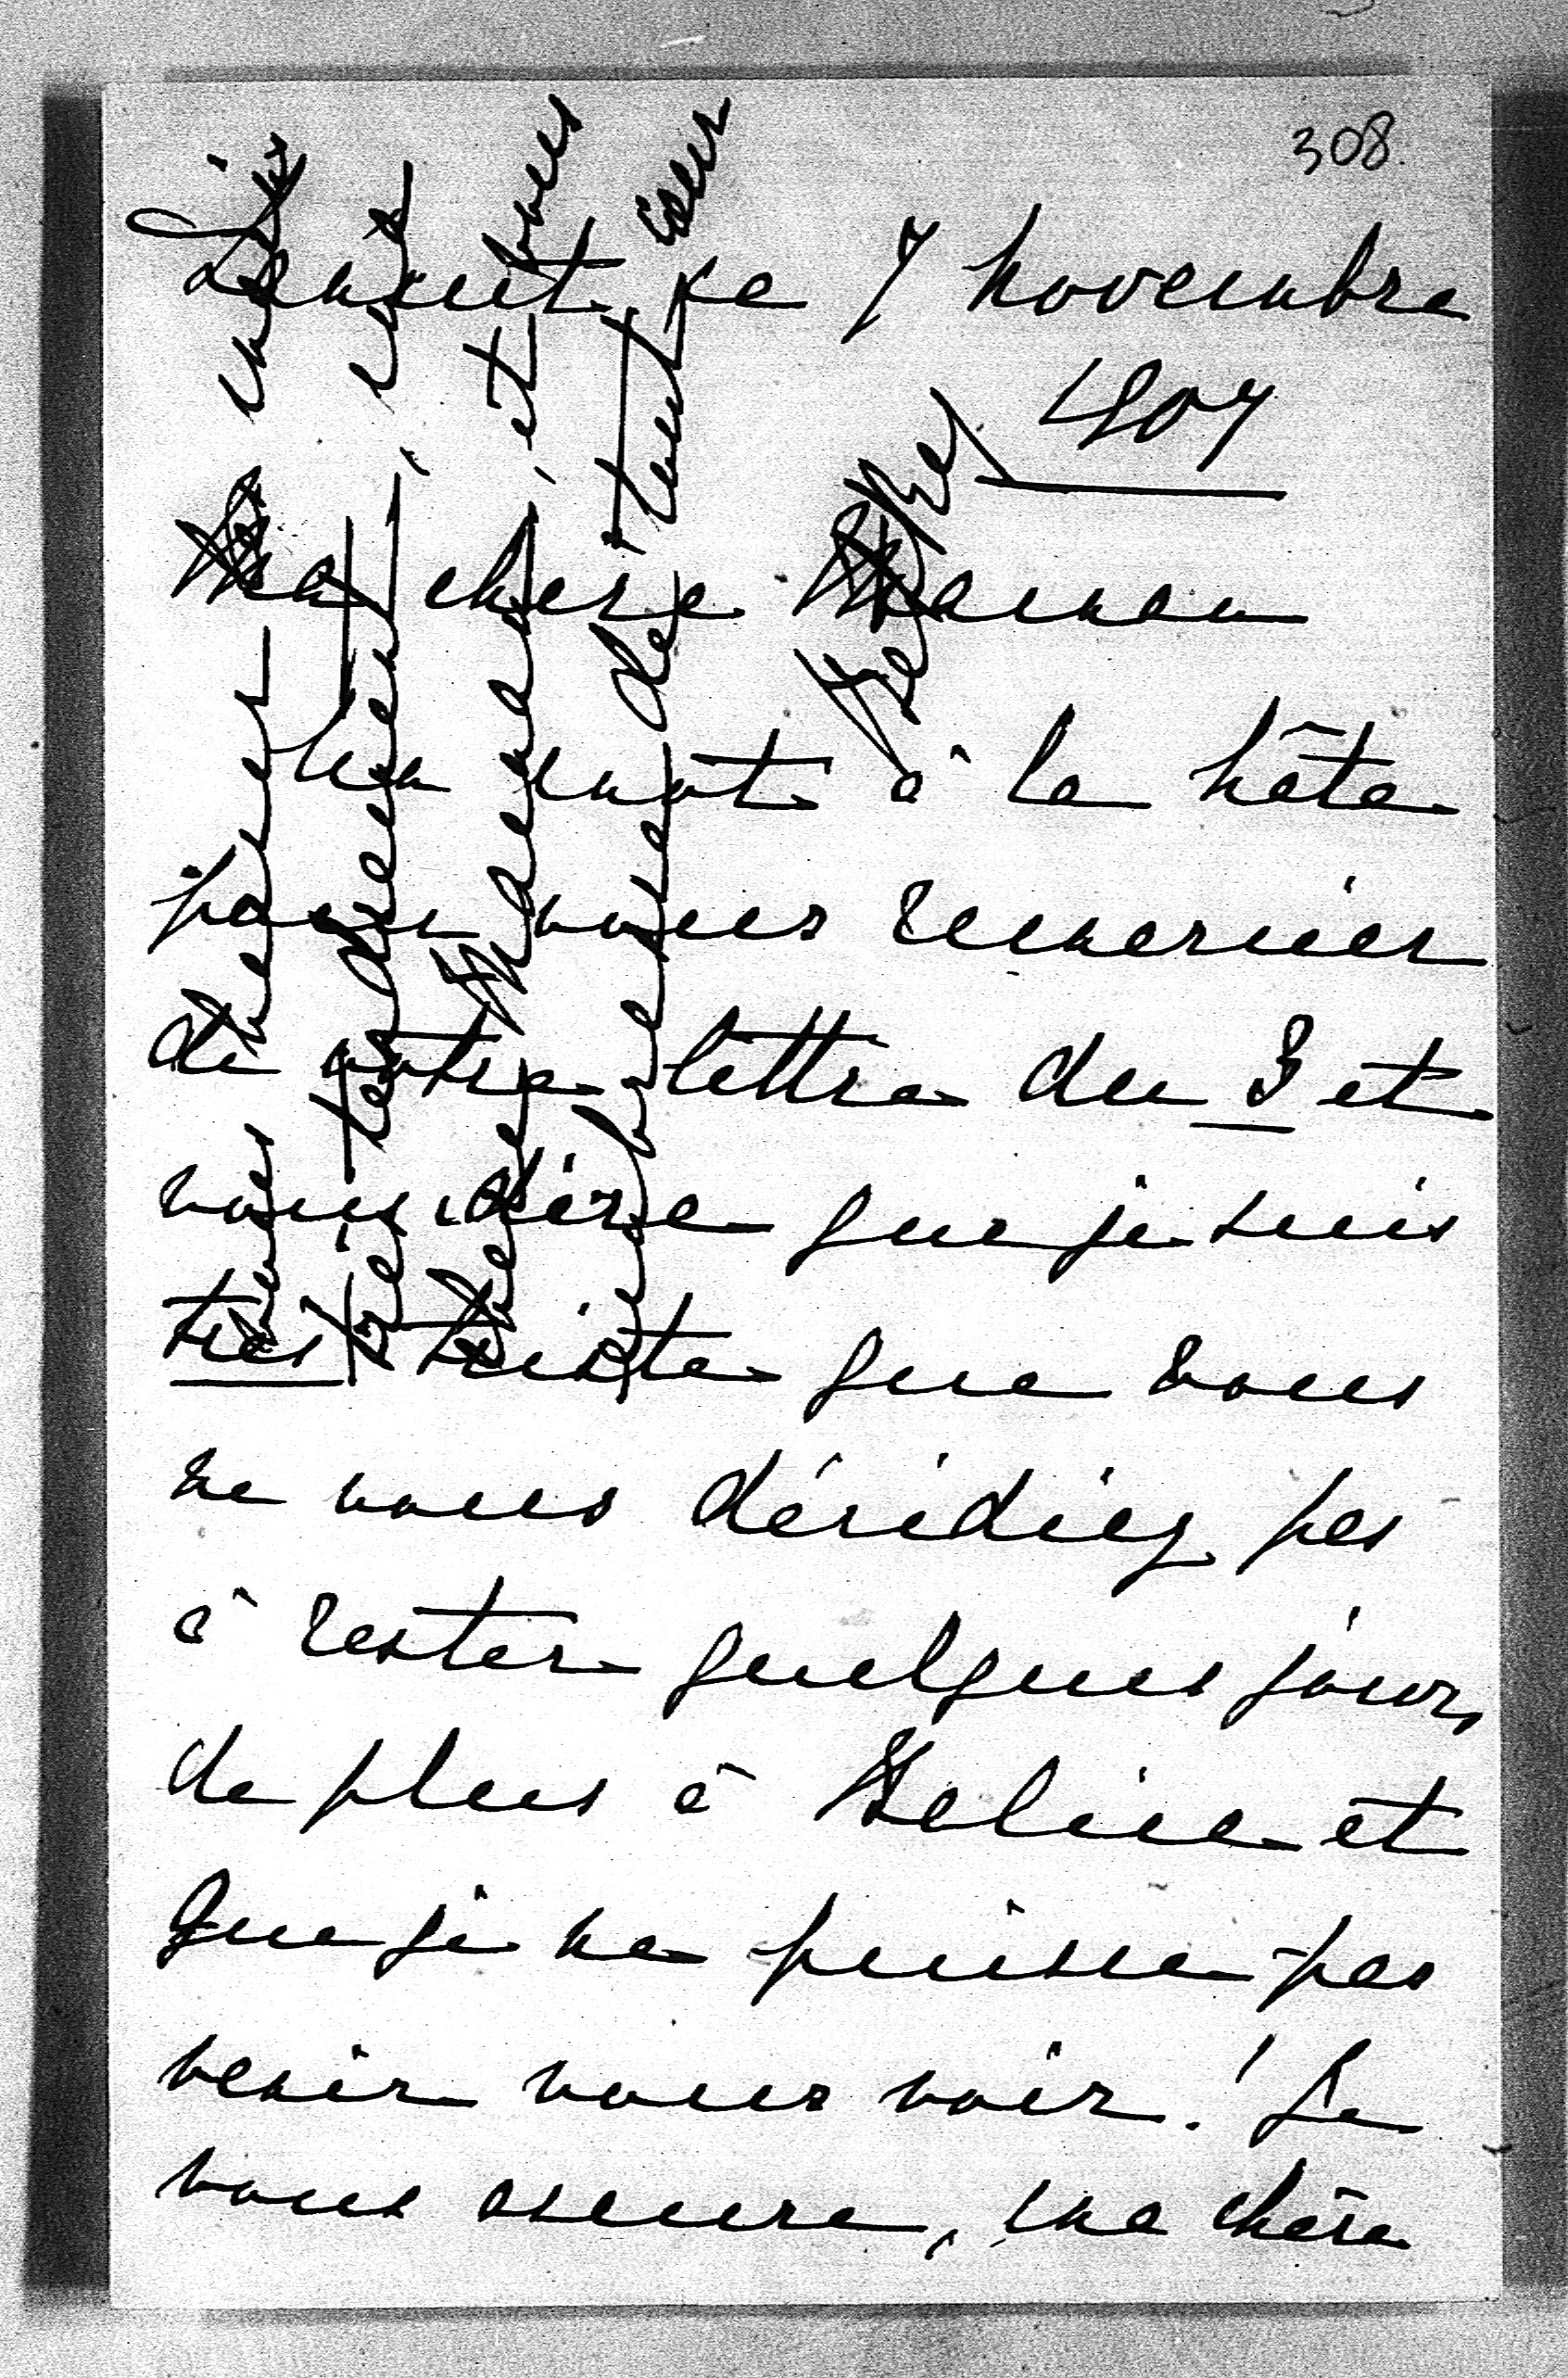 308.
Lancut, ce 7 novembre
1907
Ma chère Maman
Un mot à la hâte
pour vous remercier
de votre lettre du 3 et
vous dire que je suis
très triste que vous
ne vous décidiez pas
à rester quelques jours
de plus à et
que je ne puisse pas
venir vous voir! Je
vous assure, ma chère
vous
très tendrement,
chère Maman, et vous
embrasse de tout cœur